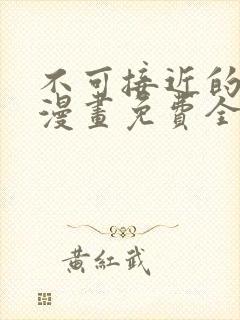 不可接近的
漫畫免費全
黃紅武